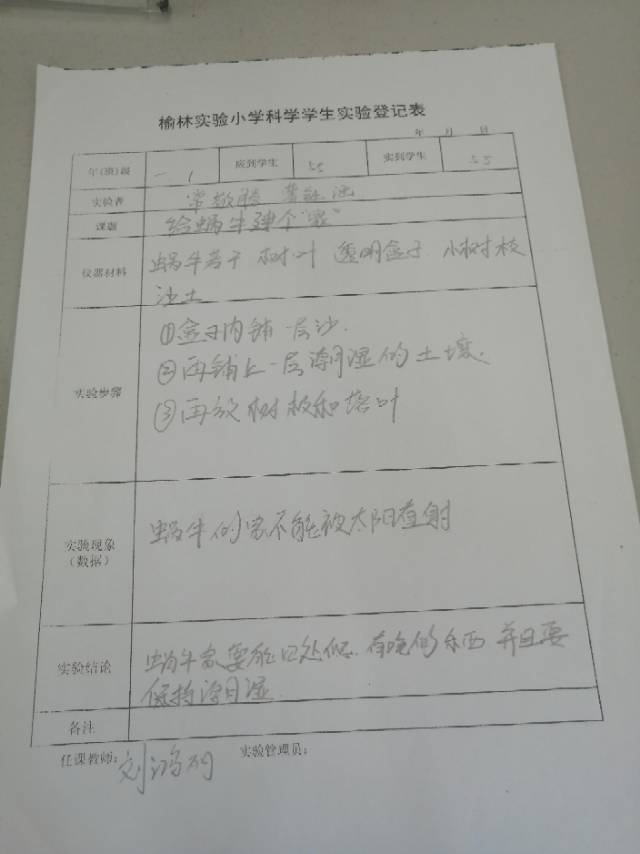 榆林实验小学科学学生实验登记表
年 月 日
年(班)级 一 1 应到学生 55 实到学生 55
实验者
课题 给蜗牛建个"家"
仪器材料 蜗牛若干 树叶 透明盒子 小树枝
沙土
实验步骤
①盒子内铺一层沙.
②再铺上一层潮湿的土壤.
③再放树枝和落叶
实验现象
(数据)
蜗牛的家不能被太阳直射
实验结论
蜗牛家要能 有吃的东西 并且要
保持潮湿
备注
任课教师: 实验管理员: